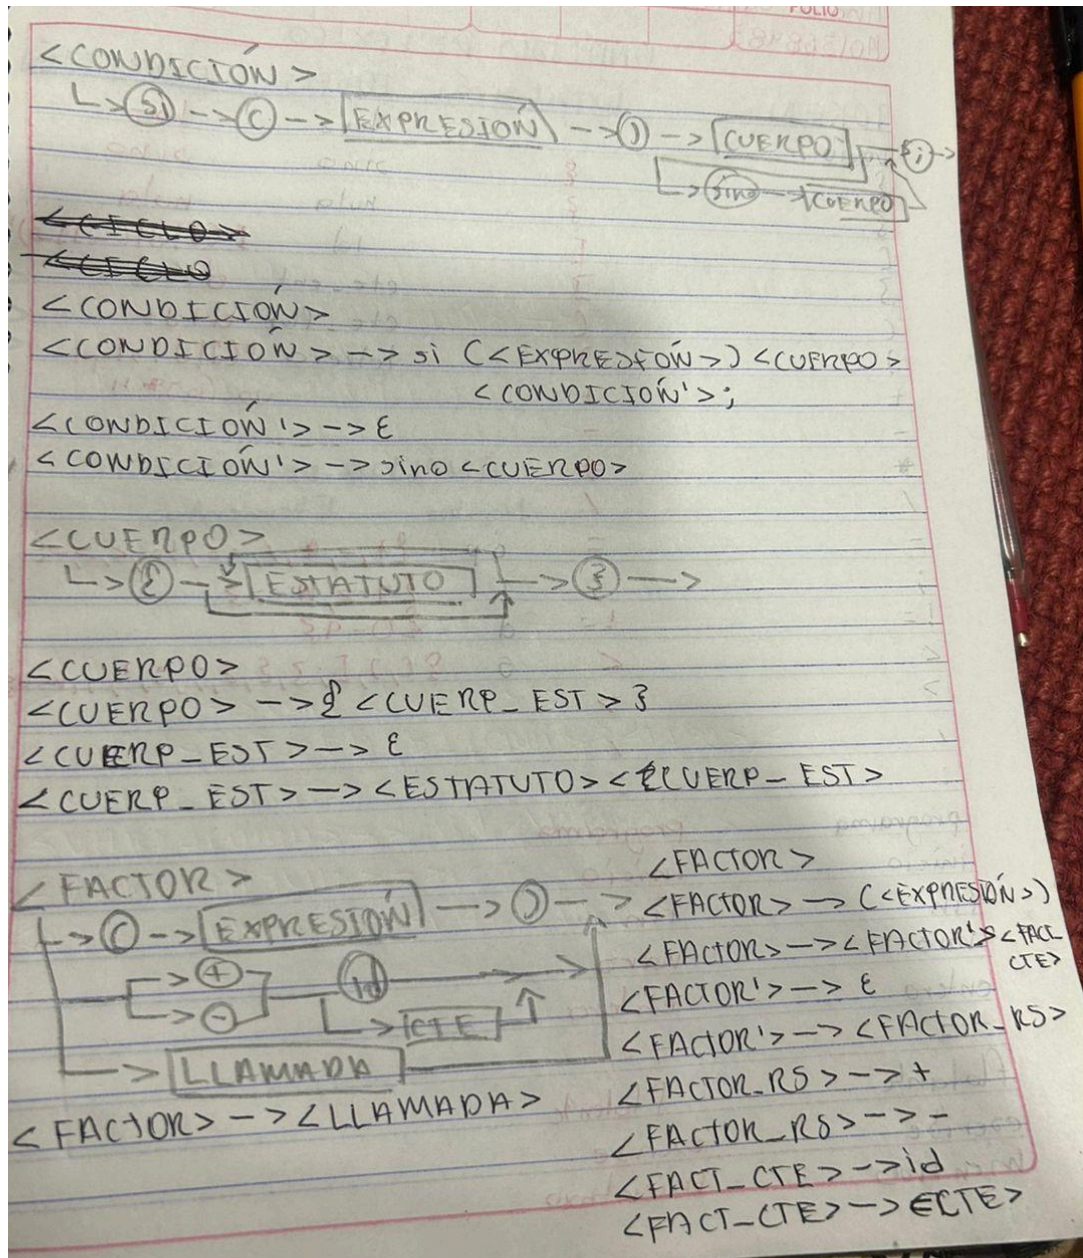 FOLIO
<CONDICIÓN>
└> si --> ( --> EXPRESIÓN --> ) --> CUERPO --> ; ->
└> sino --> CUERPO
<CICLO>
<CICLO
<CONDICIÓN>
<CONDICIÓN> --> si (<EXPRESIÓN>) <CUERPO>
<CONDICIÓN'>;
<CONDICIÓN'> --> ε
<CONDICIÓN'> --> sino <CUERPO>
<CUERPO>
└> { --> ESTATUTO --> } -->
<CUERPO>
<CUERPO> --> { <CUERP_EST> }
<CUERP_EST> --> ε
<CUERP_EST> --> <ESTATUTO> <CUERP_EST>
<FACTOR>
└> ( --> EXPRESIÓN --> ) -->
> + id
> - └> CTE
└> LLAMADA
<FACTOR> --> <LLAMADA>
<FACTOR>
<FACTOR> --> (<EXPRESIÓN>)
<FACTOR> --> <FACTOR'> <FACT_
CTE>
<FACTOR'> --> ε
<FACTOR'> --> <FACTOR_RS>
<FACTOR_RS> --> +
<FACTOR_RS> --> -
<FACT_CTE> --> id
<FACT_CTE> --> <CTE>